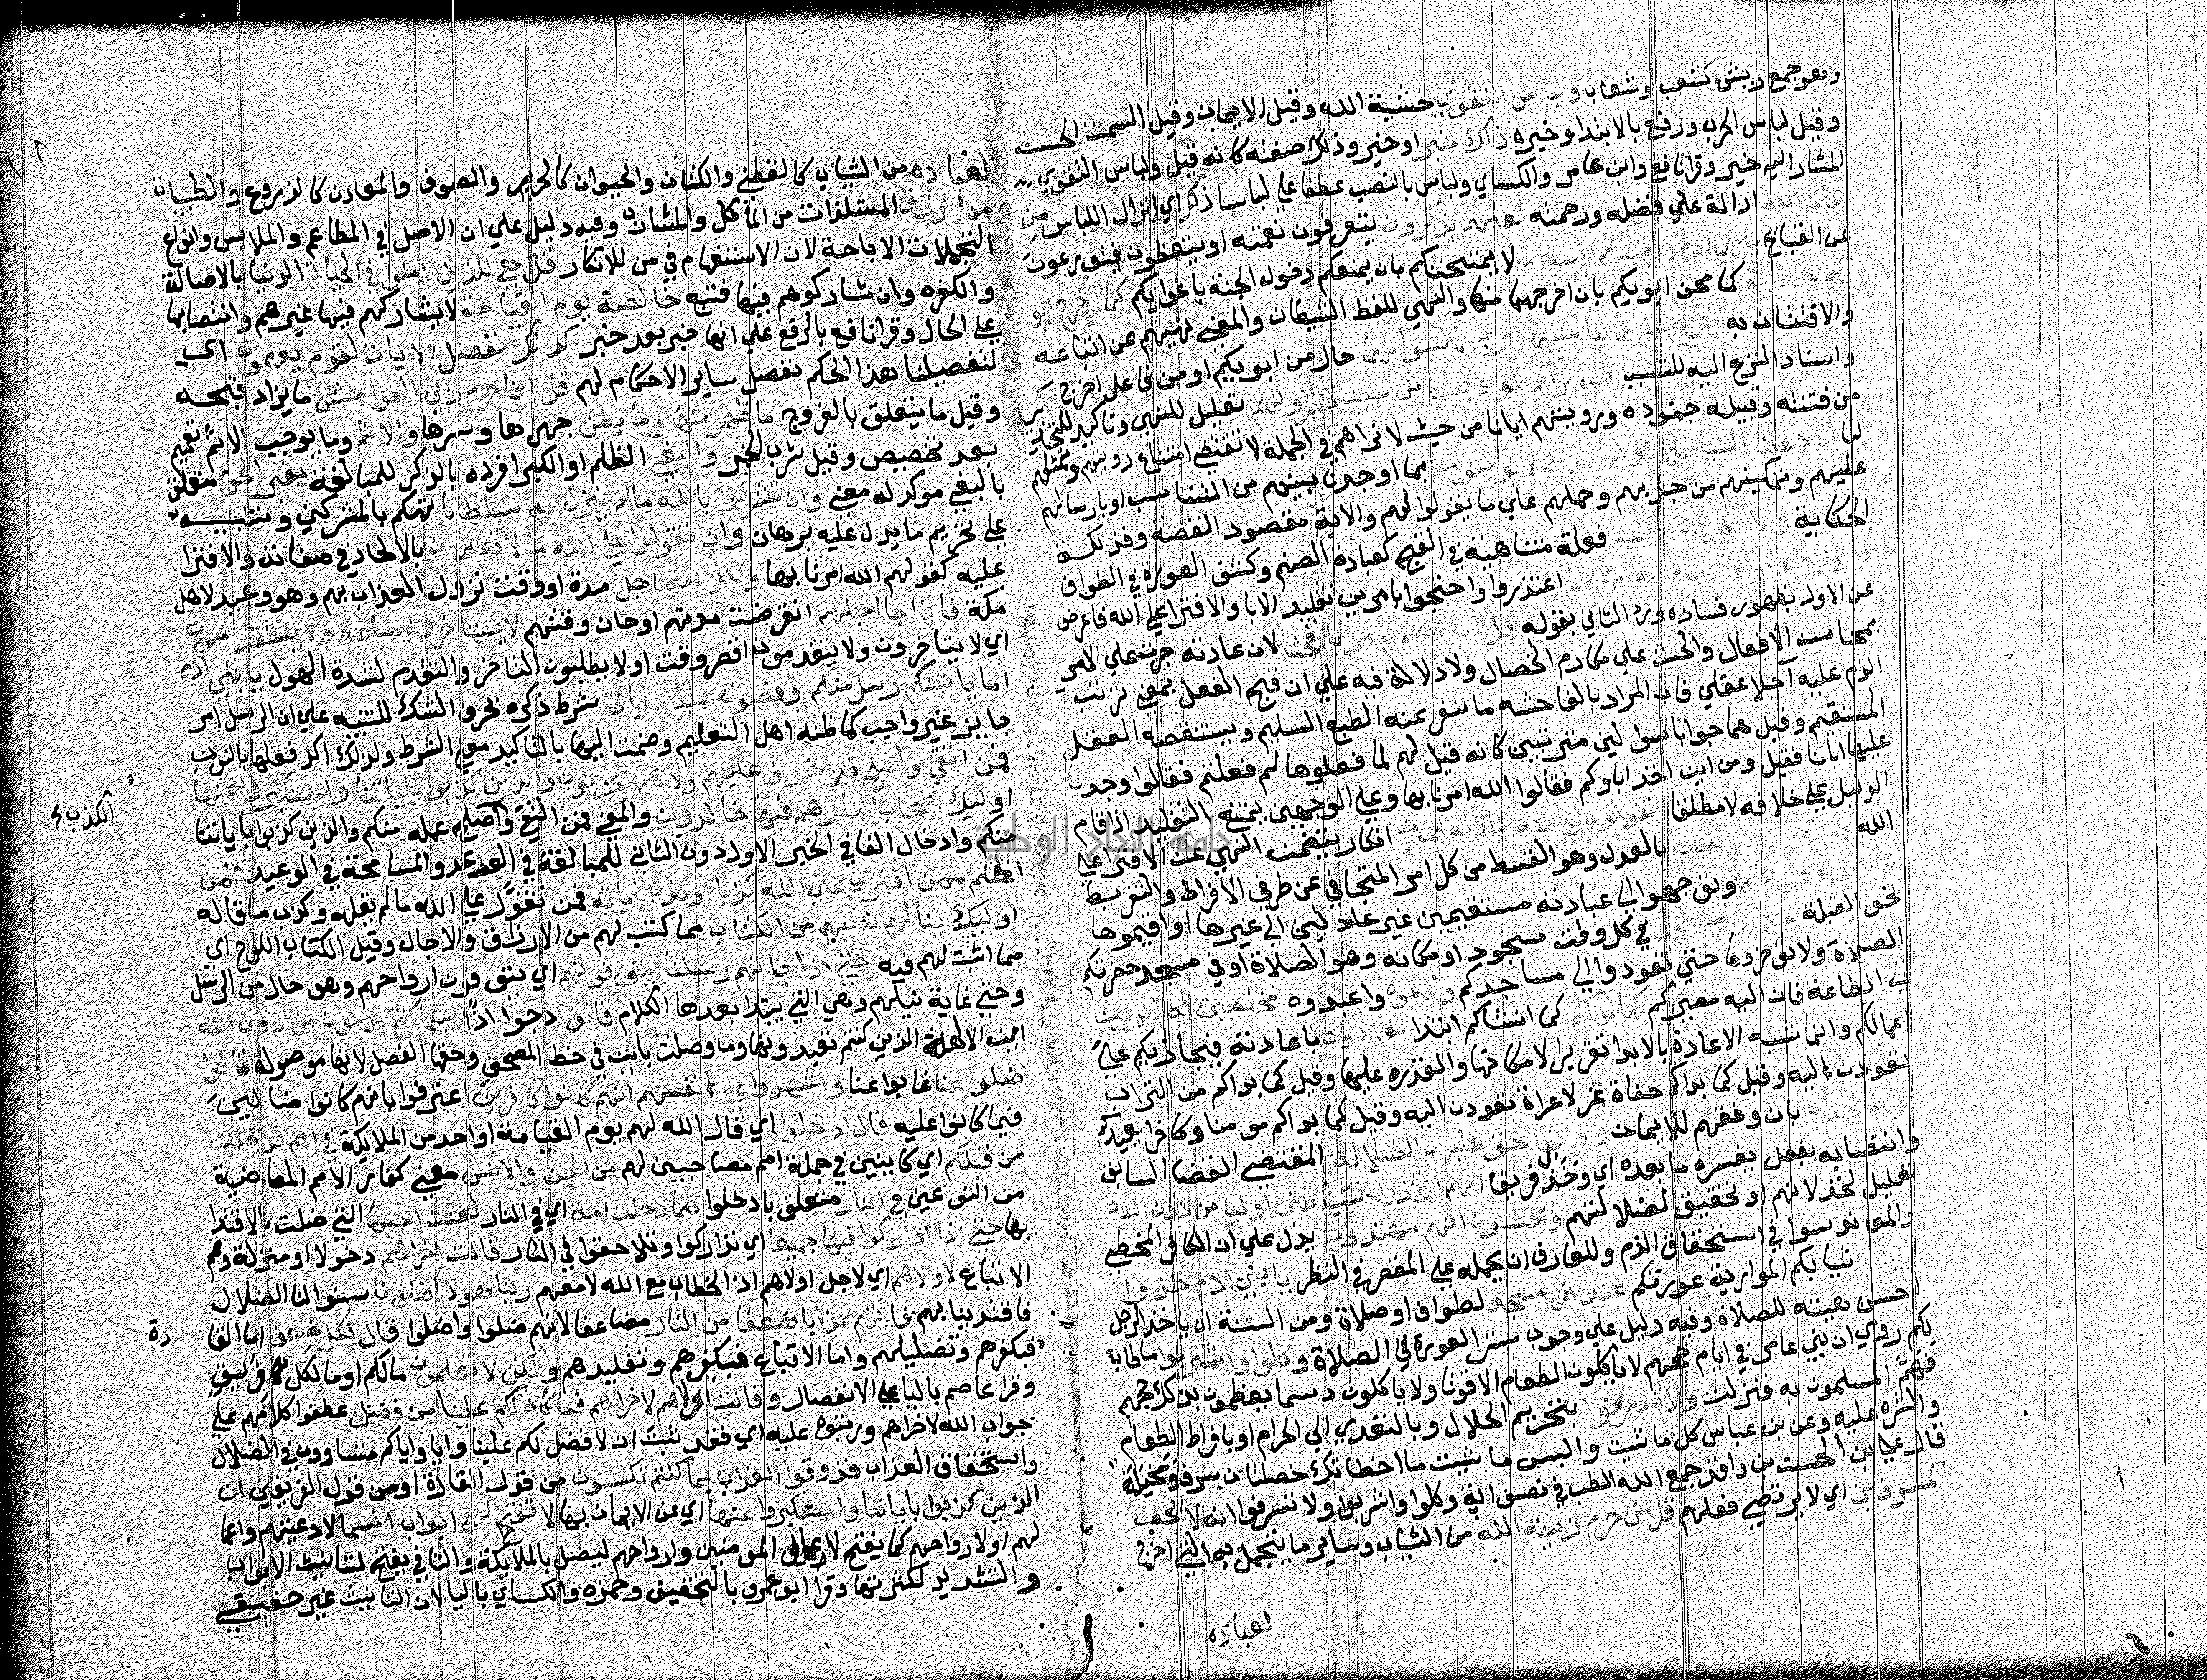 وهو جمع ريش كشعب وشعاب ولباس التقوي خشية الله وقيل الايمان وقيل السمت الحسن
وقيل لباس الحرب ورفع بالابتدا وخبره ذلك خير او خير وذلك صفته كانه قيل ولباس التقوي
المشار اليه خير وقرا نافع وابن عامر والكساي ولباس بالنصب عطفا علي لباسا ذكر اي انزال اللباس من
ايات الله الدالة علي فضله ورحمته لعلهم يذكرون يتعرفون نعمته او يتعظون فيتورعون
عن القبايح يا بني ادم لا يفتننكم الشيطان لا يمتحننكم بان يمنعكم دخول الجنة باغوايكم كما اخرج ابو
يكم من الجنة كما محن ابويكم بان اخرجهما منها والنهي للفظ الشيطان والمعني نهيهم عن اتباعه
والافتتان به ينزع عنهما لباسهما ليريهما سواتهما حال من ابويكم او من فاعل اخرج
واسناد النزع اليه للتسبب انه يراكم هو وقبيله من حيث لا ترونهم تعليل للنهي وتاكيد للتحذير
من فتنته وقبيله جنوده ورويتهم ايانا من حيث لا نراهم في الجملة لا تقتضي امتناع رويتهم وتمثلهم
لنا انا جعلنا الشياطين اوليا للذين لا يومنون بما اوجدنا بينهم من التناسب او بارسالهم
عليهم وتمكينهم من خذلهم وحملهم علي ما سولوا لهم والاية مقصود القصة وفذلكة
الحكاية واذا فعلوا فاحشة فعلة متناهية في القبح كعبادة الصنم وكشف العورة في الطواف
قالوا وجدنا عليها اباءنا والله امرنا بها اعتذروا واحتجوا بامرين تقليد الابا والافترا علي الله فاعرض
عن الاول لظهور فساده ورد الثاني بقوله قل ان الله لا يامر بالفحشا لان عادته جرت علي الامر
بمحاسن الافعال والحث علي مكارم الخصال ولا دلالة فيه علي ان قبح الفعل بمعني ترتب
الذم عليه آجلا عقلي فان المراد بالفاحشه ما ينفر عنه الطبع السليم ويستنقصه العقل
المستقيم وقيل هما جوابا سوالين مترتبين كانه قيل لهم لما فعلوها لم فعلتم فقالوا وجدنا
عليها ابانا فقيل ومن اين اخذ اباوكم فقالوا الله امرنا بها وعلي الوجهين يمتنع التقليد اذا قام
الدليل علي خلافه لا مطلقا تقولون علي الله ما لا تعلمون انكار يتضمن النهي عن الافترا علي
الله قل امر ربي بالقسط بالعدل وهو القسط من كل امر المتجافي عن طرفي الافراط والتفريط
واقيموا وجوهكم وتوجهوا الي عبادته مستقيمين غير عادلين الي غيرها او اقيموها
نحو القبلة عند كل مسجد في كل وقت سجود او مكانه وهو الصلاة او في مسجد حضرتكم
الصلاة ولا توخروها حتي تعودوا الي مساجدكم وادعوه واعبدوه مخلصين له الدين
اي الطاعة فان اليه مصيركم كما بداكم كما انشاكم ابتدا تعودون باعادته فيجازيكم علي
اعمالكم وانما شبه الاعادة بالابدا تقريرا لامكانها والقدره عليها وقيل كما بداكم من التراب
تعودون اليه وقيل كما بداكم حفاة عراة غرلا تعودون اليه وقيل كما بداكم مومنا وكافرا يعيدكم
فريقا هدي بان وفقهم للايمان وفريقا حق عليهم الضلالة بمقتضي القضا السابق
وانتصابه بفعل يفسره ما بعده اي وخذل فريقا انهم اتخذوا الشياطين اوليا من دون الله
تعليل لخذلانهم او تحقيق لضلالتهم ويحسبون انهم مهتدون يدل علي ان الكافر المخطي
والمعاند سوا في استحقاق الذم وللفارق ان يحمله علي المقصر في النظر يا بني ادم خذوا
زينتكم ثيابكم الموارية عورتكم عند كل مسجد لطواف او صلاة ومن السنة ان ياخذ الرجل
احسن هيئته للصلاة وفيه دليل علي وجوب ستر العورة في الصلاة وكلوا واشربوا ما طاب
لكم روي ان بني عامر في ايام حجهم لا ياكلون الطعام الا قوتا ولا ياكلون دسما يعظمون بذلك حجهم
فهم المسلمون به فنزلت ولا تسرفوا بتحريم الحلال وبالتعدي الي الحرام او بافراط الطعام
والشره عليه وعن بن عباس كل ما شيت والبس ما شيت ما اخطاتك خصلتان سرف ومخيلة
قال علي بن الحسين بن واقد جمع الله الطب في نصف اية وكلوا واشربوا ولا تسرفوا انه لا يحب
المسرفين اي لا يرتضي فعلهم قل من حرم زينة الله من الثياب وساير ما يتجمل به التي اخرج
لعباده
لعباده من الثياب كالقطن والكتان والحيوان كالحرير والصوف والمعادن كالدروع والطيبات
من الرزق المستلذات من الماكل والمشارب وفيه دليل علي ان الاصل في المطاعم والملابس وانواع
التجملات الاباحة لان الاستفهام في من للانكار قل هي للذين امنوا في الحياة الدنيا بالاصالة
والكفره وان شاركوهم فيها فتبع خالصة يوم القيامة لا يشاركهم فيها غيرهم وانتصابها
علي الحال وقرا نافع بالرفع علي انها خبر بعد خبر كذلك نفصل الايات لقوم يعلمون اي
كتفصيلنا هذا الحكم نفصل ساير الاحكام لهم قل انما حرم ربي الفواحش ما يزاد قبحه
وقيل ما يتعلق بالفروج ما ظهر منها وما بطن جهرها وسرها والاثم وما يوجب الاثم تعميم
بعد تخصيص وقيل شرب الخمر والبغي الظلم او الكبر افرده بالذكر للمبالغة بغير الحق متعلق
بالبغي موكد له معني وان تشركوا بالله ما لم ينزل به سلطانا تهكم بالمشركين وتنبيه
علي تحريم ما يدل عليه برهان وان تقولوا علي الله ما لا تعلمون بالالحاد في صفاته والافترا
عليه كقولهم الله امرنا بها ولكل امة اجل مدة او وقت نزول العذاب بهم وهو وعيد لاهل
مكة فاذا جا اجلهم انقرضت مدتهم او حان وقتهم لا يستاخرون ساعة ولا يستقدمون
اي لا يتاخرون ولا يتقدمون اقصر وقت او لا يطلبون التاخر والتقدم لشدة الهول يا بني ادم
اما ياتينكم رسل منكم يقصون عليكم اياتي شرط ذكره بحرف الشك للتنبيه علي ان الرسل امر
جايز غير واجب كما ظنه اهل التعليم وضمت اليها ما لتاكيد معني الشرط ولذلك اكد فعلها بالنون
فمن اتقي واصلح فلا خوف عليهم ولا هم يحزنون والذين كذبوا باياتنا واستكبروا عنها
اوليك اصحاب النار هم فيها خالدون والمعني فمن اتقي واصلح عمله منكم والذين كذبوا باياتنا
منكم وادخال الفا في الخبر الاول دون الثاني للمبالغة في الوعد والمسامحة في الوعيد فمن
اظلم ممن افتري علي الله كذبا او كذب باياته فمن تقول علي الله ما لم يقله وكذب ما قاله
اوليك ينالهم نصيبهم من الكتاب مما كتب لهم من الارزاق والاجال وقيل الكتاب اللوح اي
مما اثبت لهم فيه حتي اذا جاتهم رسلنا يتوفونهم اي يتوفون ارواحهم وهو حال من الرسل
وحتي غاية نيلهم وهي التي يبتدا بعدها الكلام قالوا جواب اذا اين ما كنتم تدعون من دون الله
اين الالهة الذين كنتم تعبدونها وما وصلت باين في خط المصحف وحقها الفصل لانها موصولة قالوا
ضلوا عنا غابوا عنا وشهدوا علي انفسهم انهم كانوا كافرين اعترفوا بانهم كانوا ضالين
فيما كانوا عليه قال ادخلوا اي قال الله لهم يوم القيامة او احد من الملايكة في امم قد خلت
من قبلكم اي كاينين في جملة امم مصاحبين لهم من الجن والانس يعني كفار الامم الماضية
من النوعين في النار متعلق بادخلوا كلما دخلت امة اي في النار لعنت اختها التي ضلت بالاقتدا
بها حتي اذا اداركوا فيها جميعا اي تداركوا وتلاحقوا في النار قالت اخراهم دخولا او منزلة وهم
الاتباع لاولاهم اي لاجل اولاهم اذ الخطاب مع الله لا معهم ربنا هولا اضلونا سنوا لنا الضلال
فاقتدينا بهم فاتهم عذابا ضعفا من النار مضاعفا لانهم ضلوا واضلوا قال لكل ضعف اما القا
دة
فبكفرهم وتضليلهم واما الاتباع فبكفرهم وتقليدهم ولكن لا تعلمون مالكم او ما لكل فريق
وقرا عاصم باليا علي الانفصال وقالت اولاهم لاخراهم فما كان لكم علينا من فضل عطفوا كلامهم علي
جواب الله لاخراهم ورتبوه عليه اي فقد ثبت ان لا فضل لكم علينا وانا واياكم متساوون في الضلال
واستحقاق العذاب فذوقوا العذاب بما كنتم تكسبون من قول القادة او من قول الفريقين ان
الذين كذبوا باياتنا واستكبروا عنها اي عن الايمان بها لا تفتح لهم ابواب السما لادعيتهم واعما
لهم او لارواحهم كما يفتح لاعمال المومنين وارواحهم ليصل بالملايكة والتا في يفتح لتانيث الابواب
والتشديد لكثرتها وقرا ابو عمرو بالتخفيف وحمزه والكساي باليا لان التانيث غير حقيقي